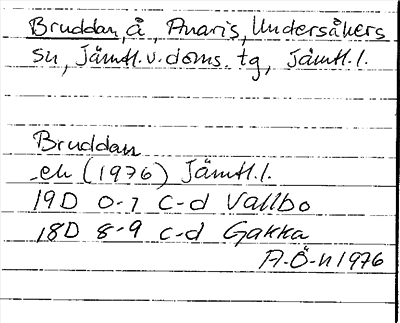 Bruddan, å, Anaris, Undersåkers
sn, Jämtl.v.doms. tg, Jämtl.l.
Bruddan
-en (1976) Jämtl.l.
19D 0-1 c-d Vallbo
18D 8-9 c-d Gakka
A-Ö-n 1976